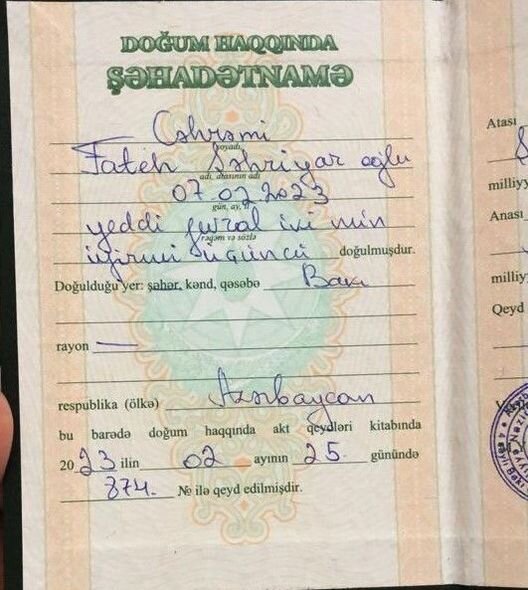 DOĞUM HAQQINDA
ŞƏHADƏTNAMƏ
Cəhrəmi
soyadı
Fateh Şəhriyar oğlu
adı, atasının adı
07.02.2023
gün, ay, il
yeddi fevral iki min
rəqəm və sözlə
iyirmi üçüncü doğulmuşdur.
Doğulduğu yer: şəhər, kənd, qəsəbə Bakı
rayon —
respublika (ölkə) Azərbaycan
bu barədə doğum haqqında akt qeydləri kitabında
2023 ilin 02 ayının 25. günündə
874. № ilə qeyd edilmişdir.
Atası
milliyy
Anası
milliyy
Qeyd